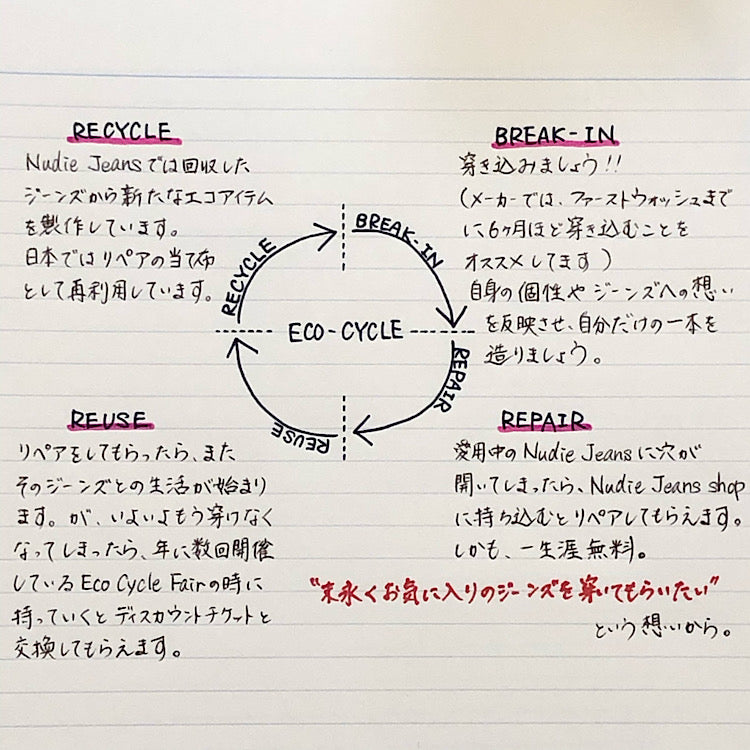 RECYCLE
Nudie Jeansでは回収した
ジーンズから新たなエコアイテム
を製作しています。
日本ではリペアの当て布
として再利用しています。
BREAK-IN
穿き込みましょう!!
(メーカーでは、ファーストウォッシュまで
に6ヶ月ほど穿き込むことを
オススメしてます)
自身の個性やジーンズへの想い
を反映させ、自分だけの一本を
造りましょう。
RECYCLE
BREAK-IN
ECO-CYCLE
REUSE
REPAIR
REUSE
リペアをしてもらったら、また
そのジーンズとの生活が始まり
ます。が、いよいよもう穿けなく
なってしまったら、年に数回開催
しているEco Cycle Fairの時に
持っていくとディスカウントチケットと
交換してもらえます。
REPAIR
愛用中のNudie Jeansに穴が
開いてしまったら、Nudie Jeans shop
に持ち込むとリペアしてもらえます。
しかも、一生涯無料。
"末永くお気に入りのジーンズを穿いてもらいたい"
という想いから。